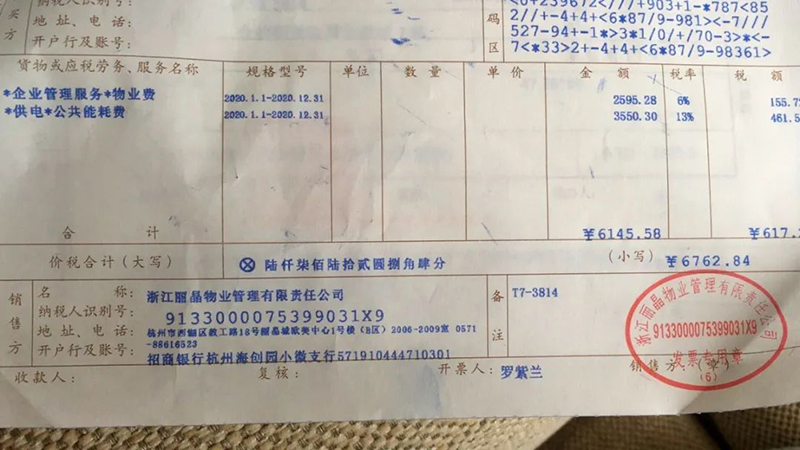 纳税人识别号：
买 地 址、电 话：
方 开户行及账号：
码 852//+-4+4+<6*87/9-981>-7///
527-94+-1*>3*1/0/+/70-3>*<-
区 7<*33>2+-4+4+<6*87/9-98361>
货物或应税劳务、服务名称 规格型号 单位 数 量 单 价 金 额 税率 税 额
*企业管理服务*物业费 2020.1.1-2020.12.31 2595.28 6% 155.7
*供电*公共能耗费 2020.1.1-2020.12.31 3550.30 13% 461.5
合 计 ￥6145.58 ￥617.2
价税合计（大写） ⊗ 陆仟柒佰陆拾贰圆捌角肆分 （小写） ￥6762.84
销售方 名 称： 浙江丽晶物业管理有限责任公司
纳税人识别号： 9133000075399031X9
地 址、电 话： 杭州市西湖区教工路18号丽晶城欧美中心1号楼（B区）2006-2009室 0571
-88616523
开户行及账号： 招商银行杭州海创园小微支行571910444710301
备注 T7-3814
浙江丽晶物业管理有限责任公司
9133000075399031X9
发票专用章
（6）
收款人： 复核： 开票人： 罗紫兰 销售方：（章）